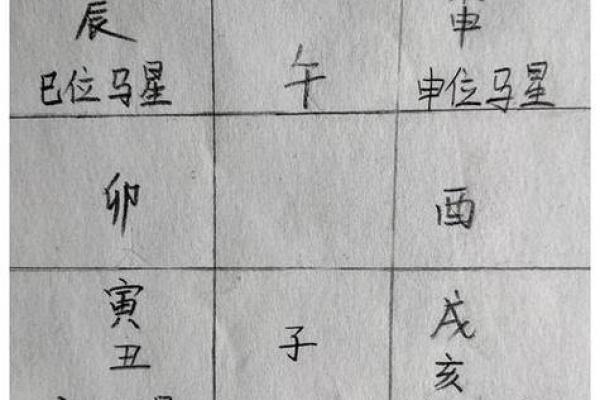 辰
申
巳位马星
午
申位马星
卯
酉
寅
丑
子
戌
亥